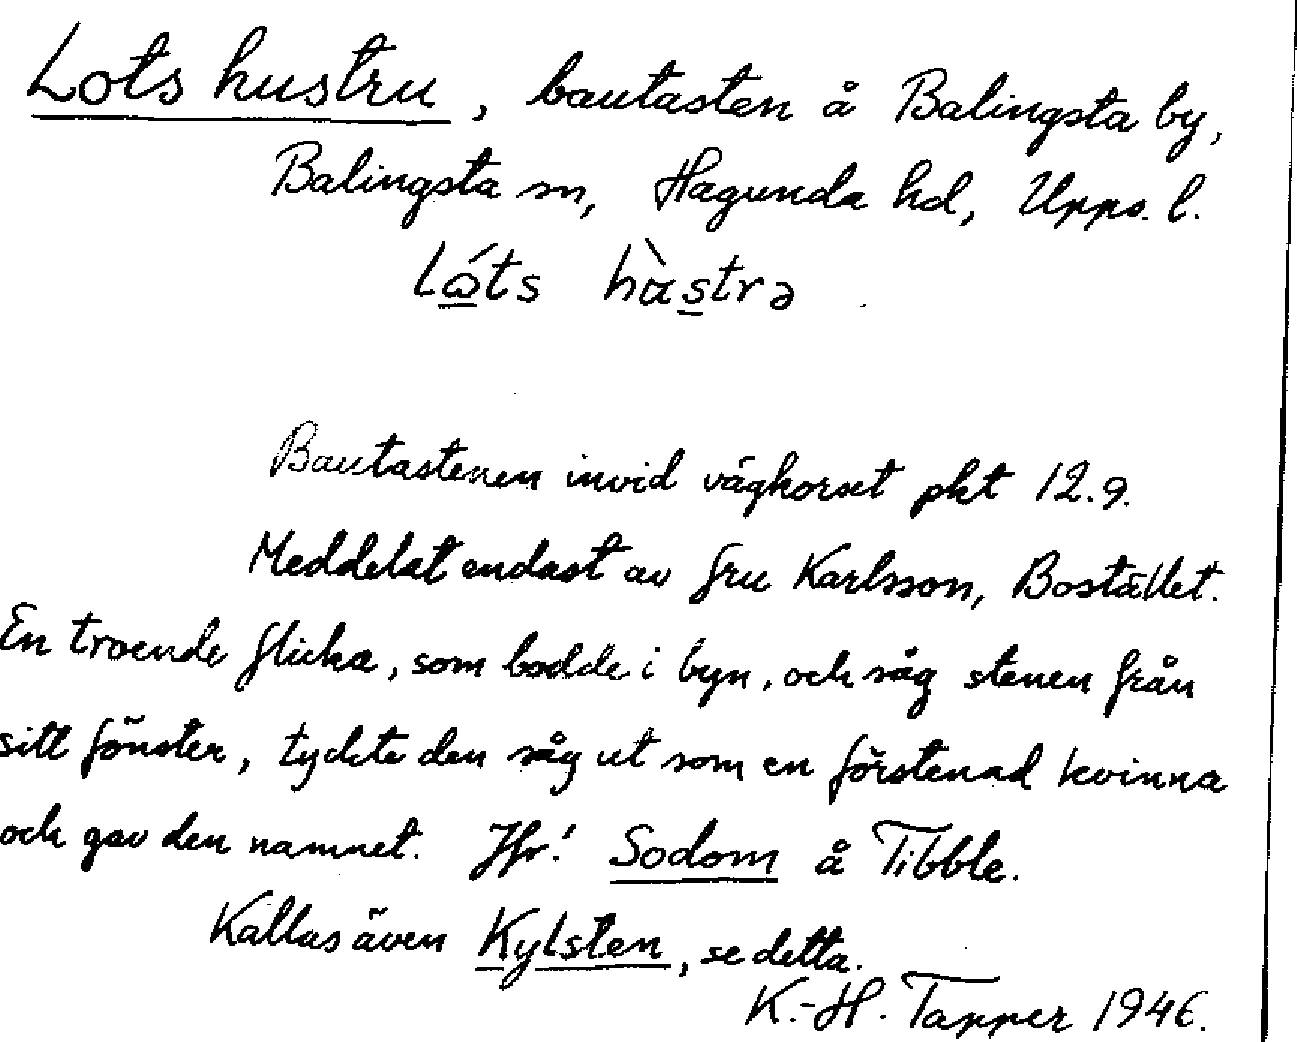 Lots hustru, bautasten å Balingsta by,
Balingsta sn, Hagunda hd, Upps. l.
Lώts hὰstrə
Bautastenen invid vägkorset pkt 12.9.
Meddelat endast av fru Karlsson, Bostället.
En troende flicka, som bodde i byn, och såg stenen från
sitt fönster, tyckte den såg ut som en förstenad kvinna
och gav den namnet. Jfr! Sodom å Tibble.
Kallas även Kylsten, se detta.
K.-H. Tapper 1946.